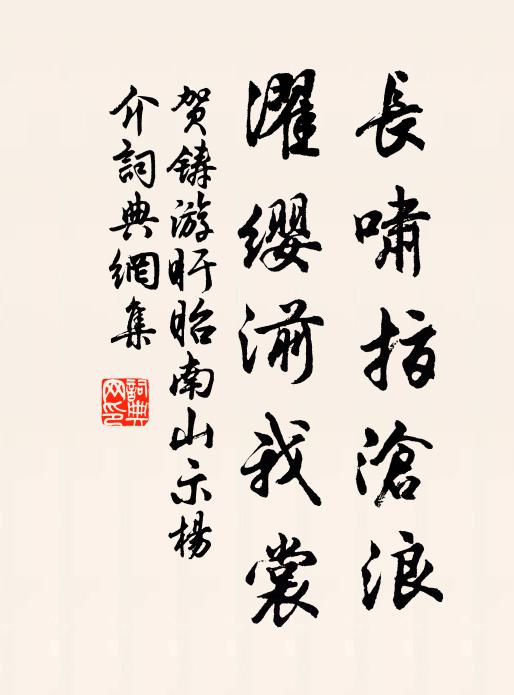 長嘯指滄浪
濯纓湔我裳
賀鑄游盱眙南山示楊
介詞典網集
詞典
网印